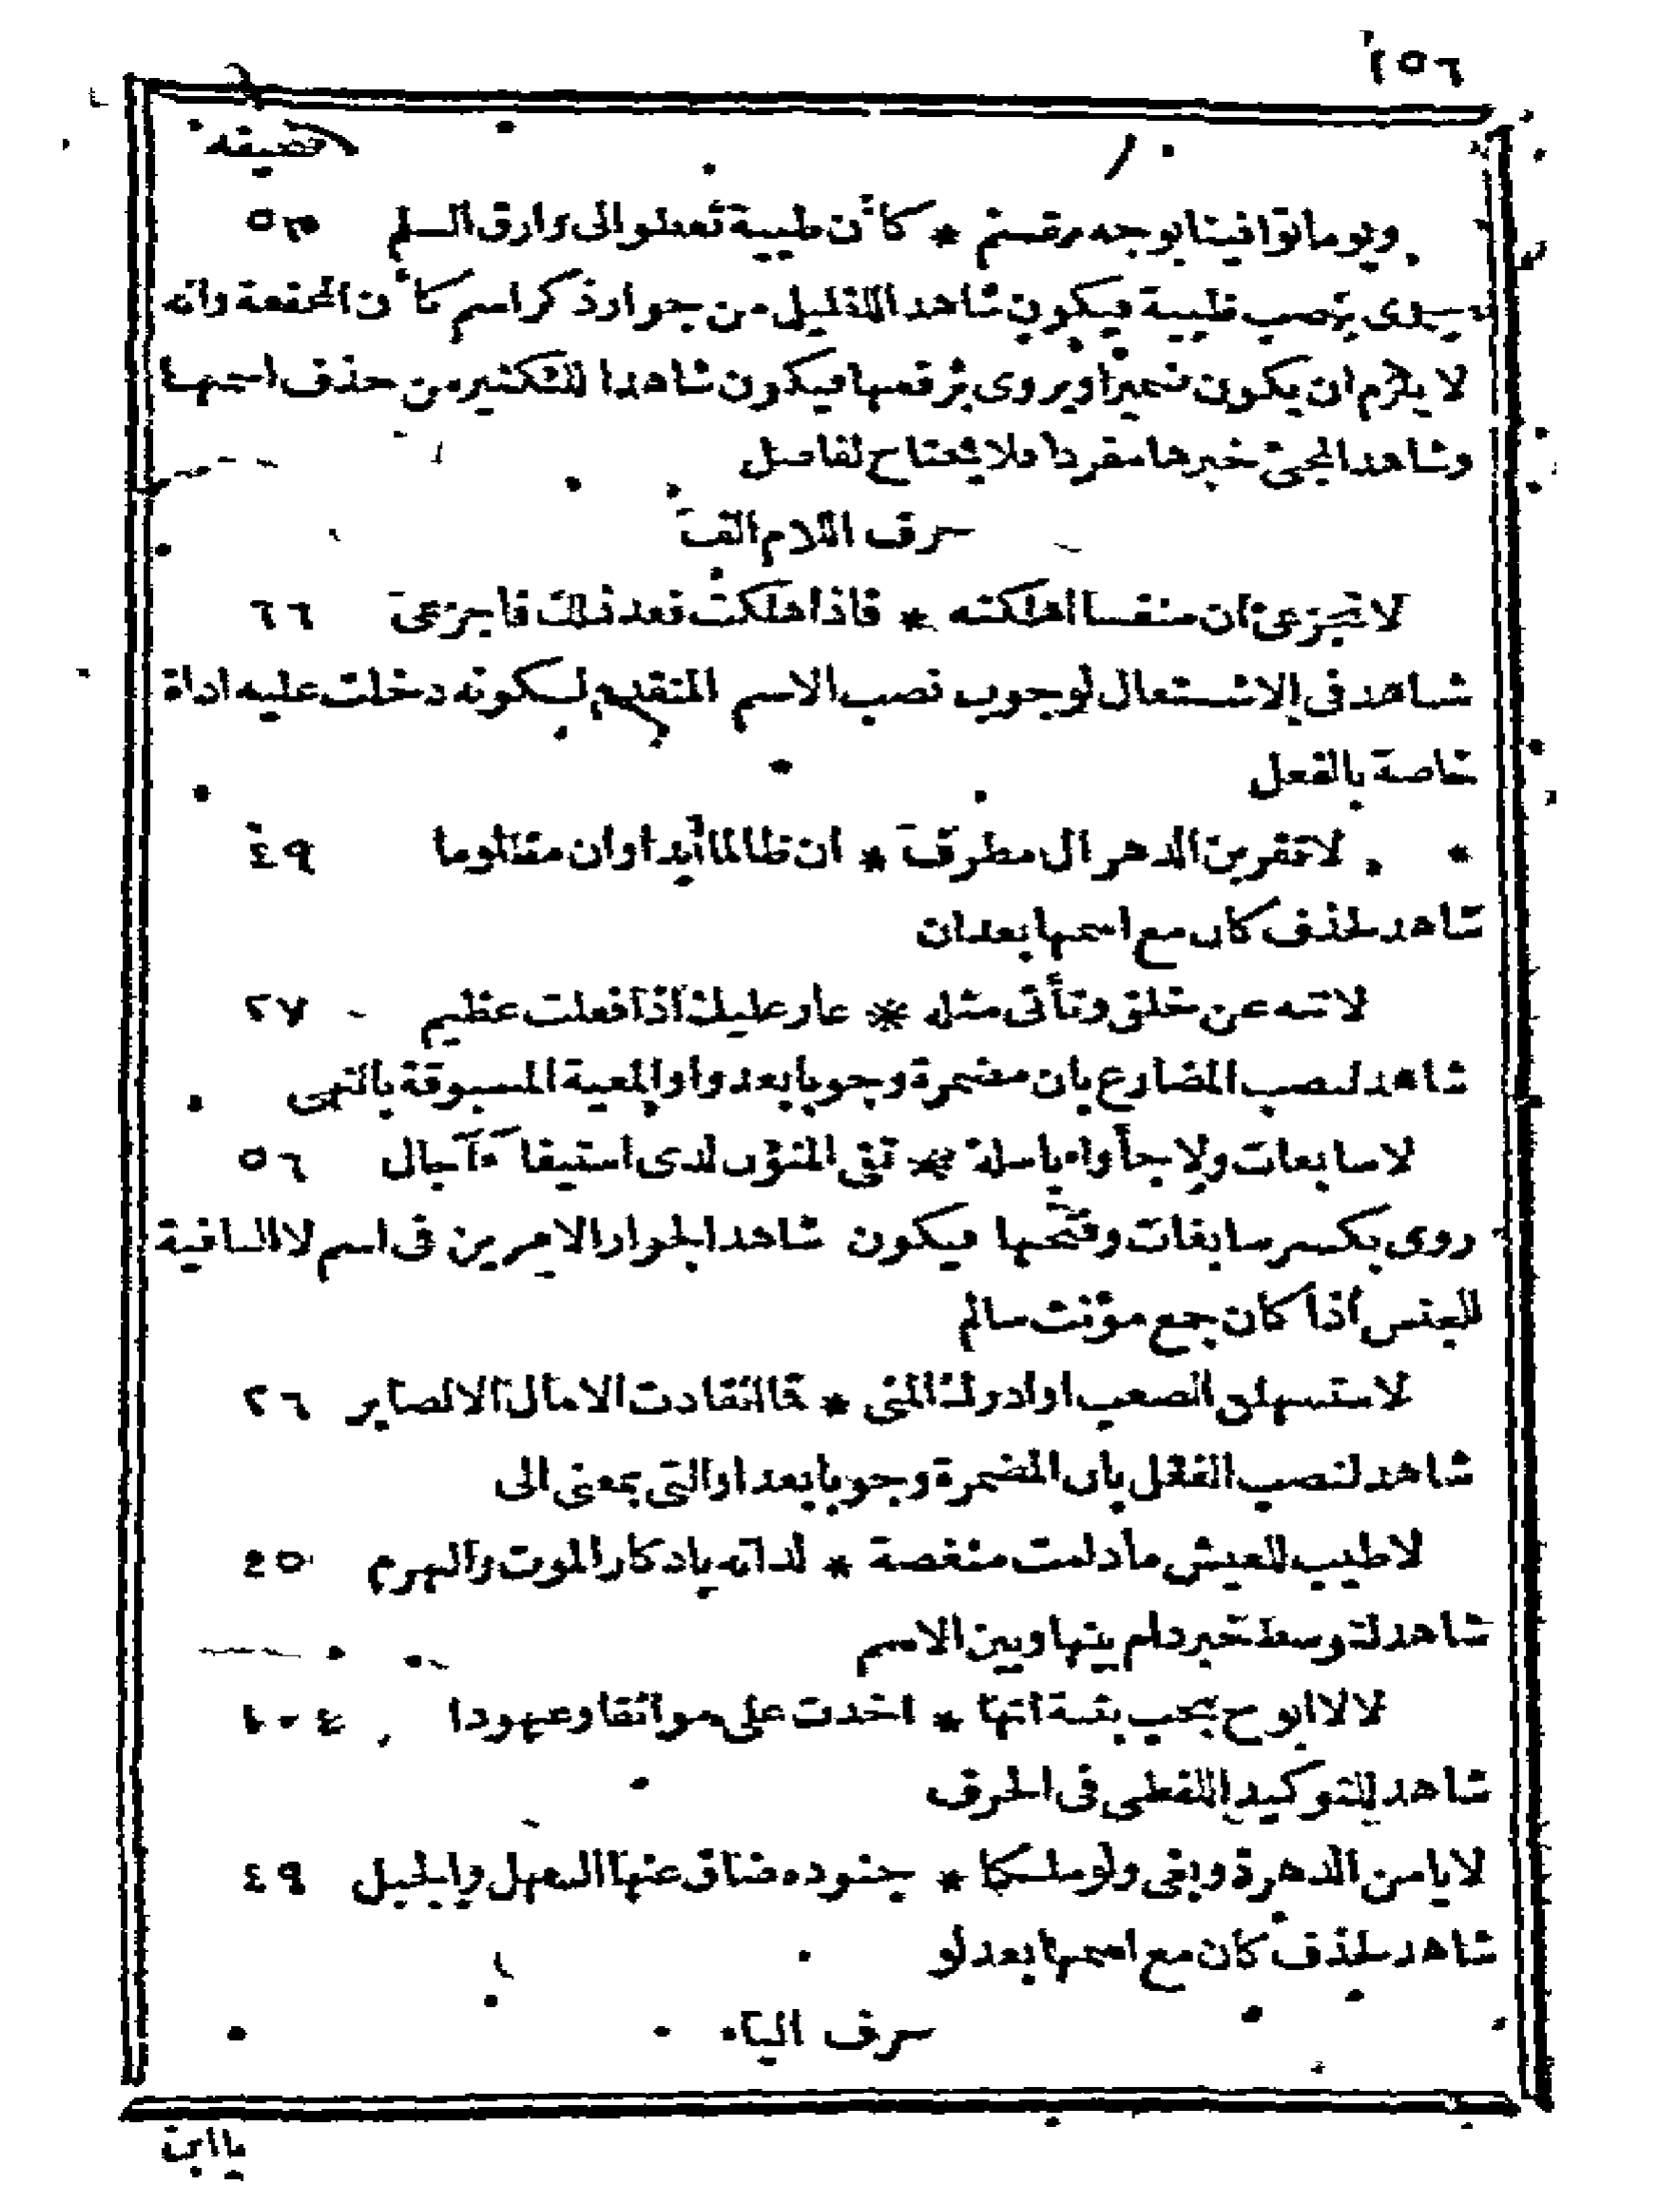 ١٥٦
صحيفه
ويوما توافينا بوجه مقسم * كأن ظبية تعطو الى وارق السلم ٥٣
يروى بنصب ظبية فيكون شاهدا للقليل من جواز ذكر اسم كأن المخففة وانه
لا يلزم ان يكون ضميرا ويروى برفعها فيكون شاهدا للتكثير من حذف اسمها
وشاهدا لمجئ خبرها مفردا فلا يحتاج لفاصل
حرف اللام الف
لا تجزعى ان منفسا اهلكته * فاذا هلكت فعند ذلك فاجزعى ٦٦
شاهد فى الاشتعال لوجوب نصب الاسم المتقدم لكونه دخلت عليه اداة
خاصة بالفعل
* لا تقربن الدهر ال مطرف * ان ظالما أبدا وان مظلوما ٤٩
شاهد لحذف كان مع اسمها بعد ان
لا تنه عن خلق وتأتى مثله * عار عليك اذا فعلت عظيم ٢٧
شاهد لنصب المضارع بان مضمرة وجوبا بعد واو المعية المسبوقة بالنهى
لا سابغات ولا جأواء باسلة * تقى المنون لدى استيفاء آجال ٥٦
روى بكسر سابغات وفتحها فيكون شاهدا لجواز الامرين فى اسم لا النافية
للجنس اذا كان جمع مؤنث سالم
لاستسهلن الصعب او ادرك المنى * فما انقادت الامال الا لصابر ٢٦
شاهد لنصب الفعل بان المضمرة وجوبا بعد او التى بمعنى الى
لا طيب للعيش ما دامت منغصة * لذاته بادكار الموت والهرم ٤٥
شاهد لتوسط خبر دام بينها وبين الاسم
لا لا ابوح بحب بثنة انها * اخذت على مواثقا وعهودا ١٠٤
شاهد للتوكيد اللفظى فى الحرف
لا يامن الدهر ذو بغى ولو ملكا * جنوده ضاق عنها السهل والجبل ٤٩
شاهد لحذف كان مع اسمها بعد لو
حرف الياء
يا ابن